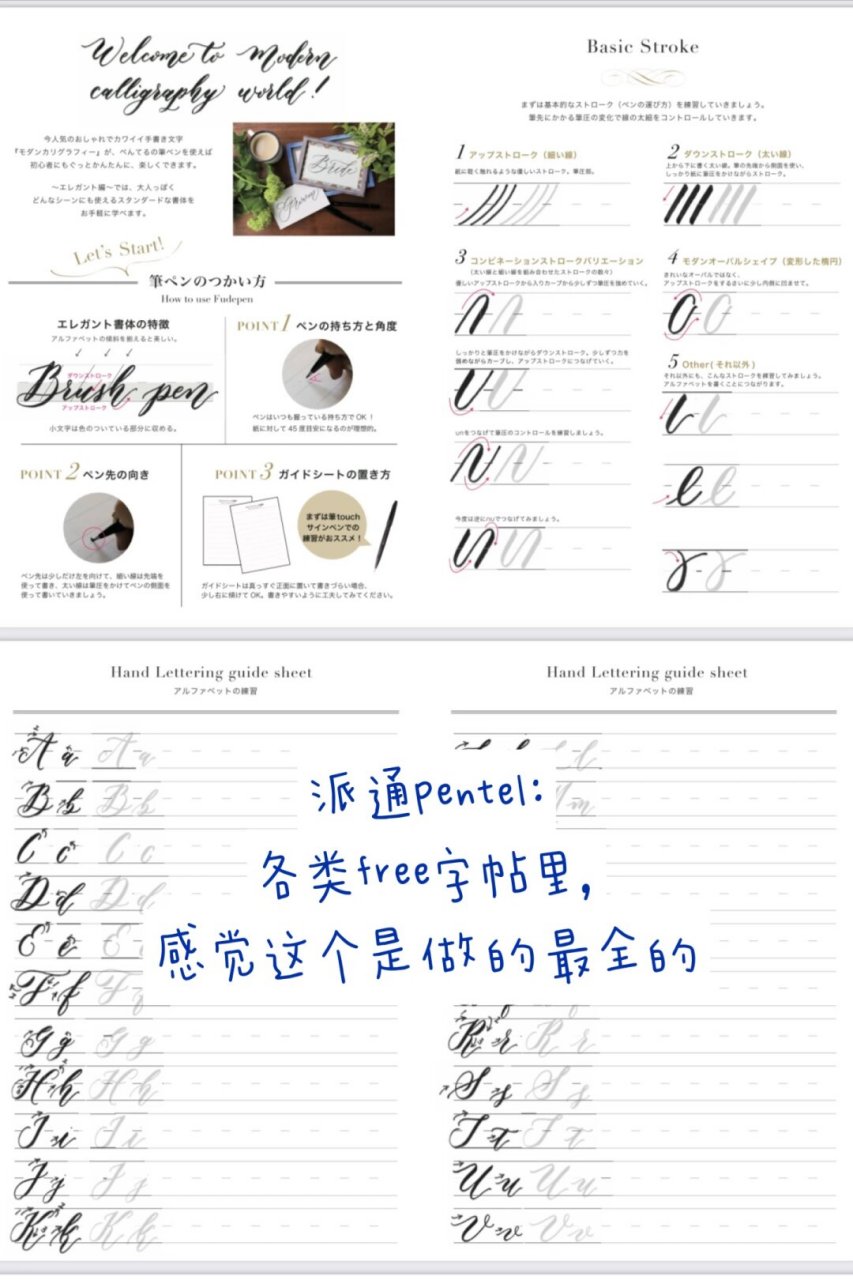 Welcome to Modern
calligraphy world!
今人気のおしゃれでカワイイ手書き文字
『モダンカリグラフィー』が、ぺんてるの筆ペンを使えば
初心者にもぐっとかんたんに、楽しくできます。
〜エレガント編〜では、大人っぽく
どんなシーンにも使えるスタンダードな書体を
お手軽に学べます。
Bride
Groom
Let's Start!
筆ペンのつかい方
How to use Fudepen
エレガント書体の特徴
アルファベットの傾斜を揃えると美しい。
ダウンストローク
Brush pen
アップストローク
小文字は色のついている部分に収める。
POINT 1 ペンの持ち方と角度
ペンはいつも握っている持ち方でOK！
紙に対して45度目安になるのが理想的。
POINT 2 ペン先の向き
ペン先は少しだけ左を向けて、細い線は先端を
使って書き、太い線は筆圧をかけてペンの側面を
使って書いていきましょう。
POINT 3 ガイドシートの置き方
まずは筆touch
サインペンでの
練習がおススメ！
ガイドシートは真っすぐ正面に置いて書きづらい場合、
少し右に傾けてOK。書きやすいように工夫してみてください。
Basic Stroke
まずは基本的なストローク（ペンの運び方）を練習していきましょう。
筆先にかかる筆圧の変化で線の太細をコントロールしていきます。
1 アップストローク（細い線）
紙に軽く触れるような優しいストローク。筆圧弱。
2 ダウンストローク（太い線）
上から下に書く太い線。筆の先端から側面を使い、
しっかり紙に筆圧をかけながらストローク。
3 コンビネーションストロークバリエーション
（太い線と細い線を組み合わせたストロークの数々）
優しいアップストロークから入りカーブから少しずつ筆圧を強めていく。
しっかりと筆圧をかけながらダウンストローク、少しずつ力を
弱めながらカーブし、アップストロークにつなげていく。
unをつなげて筆圧のコントロールを練習しましょう。
今度は逆にnuでつなげてみましょう。
4 モダンオーバルシェイプ（変形した楕円）
きれいなオーバルではなく、
アップストロークをするさいに少し内側に凹ませて。
5 Other(それ以外)
それ以外にも、こんなストロークを練習してみましょう。
アルファベットを書くことにつながります。
Hand Lettering guide sheet
アルファベットの練習
A a A a
B b B b
C c C c
D d D d
E e E
F f F
G g G g
H h H h
I i I i
J j J j
K k K k
Hand Lettering guide sheet
アルファベットの練習
R r R r
S s S s
T t T t
U u U u
V v V v
派通pentel:
各类free字帖里,
感觉这个是做的最全的